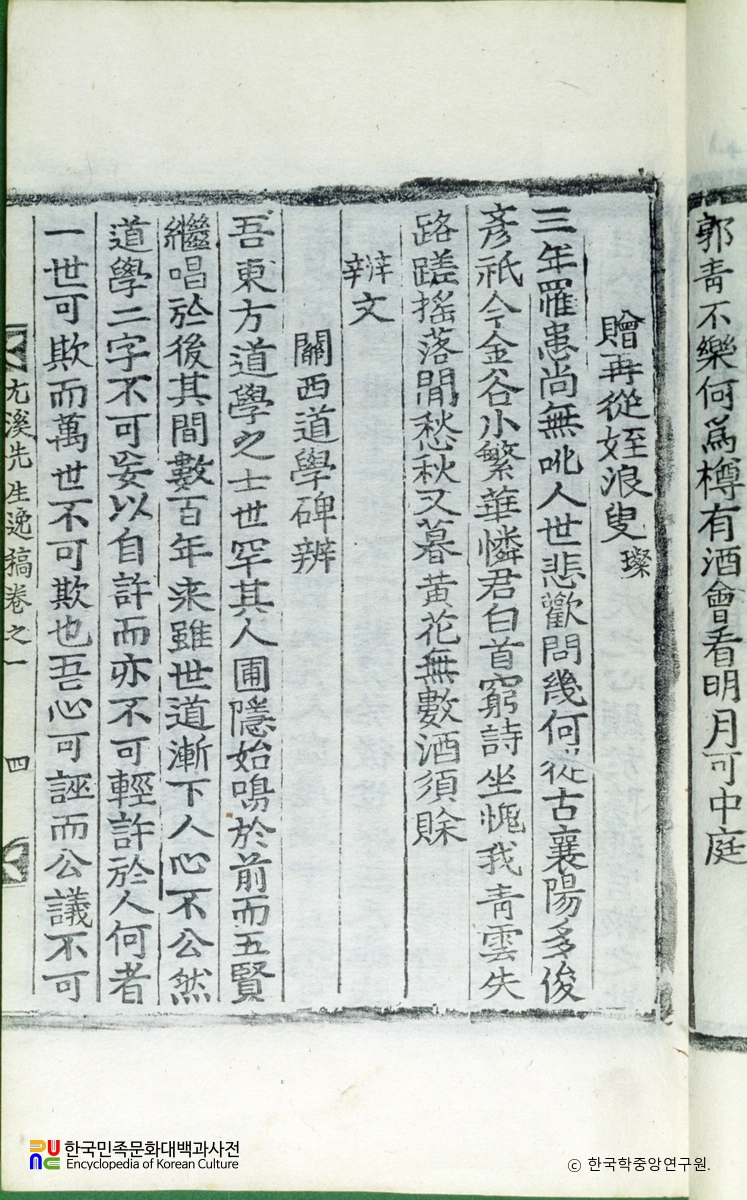 郭青不樂何爲樽有酒會看明月可中庭
贈再從姪浪叟璨
三年罹患尚無吪人世悲歡問幾何從古襄陽多俊
彦祇今金谷小繁華憐君白首窮詩坐愧我青雲失
路蹉搖落閒愁秋又暮黄花無數酒須賖
辨文
關西道學碑辨
吾東方道學之士世罕其人圃隱始鳴於前而五賢
繼唱於後其間數百年来雖世道漸下人心不公然
道學二字不可妄以自許而亦不可輕許於人何者
一世可欺而萬世不可欺也吾心可誣而公議不可
尤溪先生逸稿卷之一 四
한국민족문화대백과사전
Encyclopedia of Korean Culture
© 한국학중앙연구원.